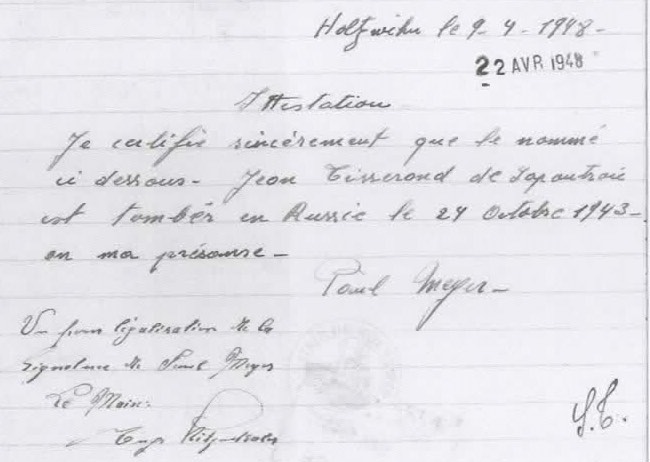 Holtzwihr le 9-4-1948-
22 AVR 1948
Attestation
Je certifie sincérement que le nommé
ci dessous- Jean Tisserond de Lapoutroie
est tombér en Russie le 24 Octobre 1943-
en ma présanse-
Paul Meyer-
Vu pour légalisation de la
signature de Paul Meyer
Le Maire:
J.T.